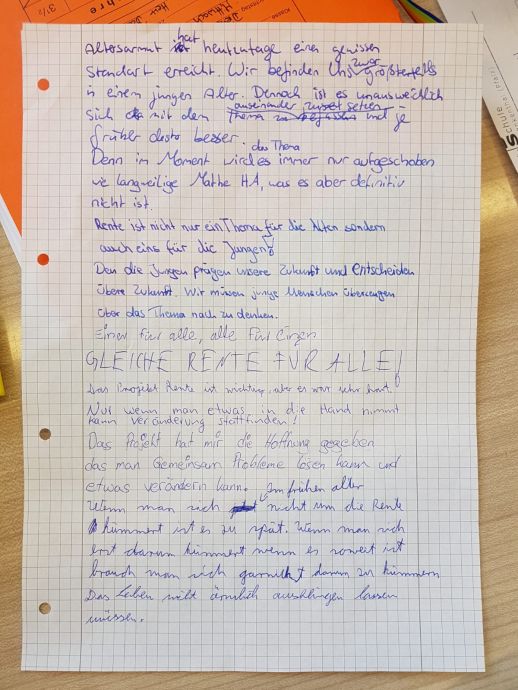 Altersarmut hat heutzutage einen gewissen
Standart erreicht. Wir befinden Uns zwar größtenteils
in einem jungen Alter. Dennoch ist es unausweichlich
sich mit dem Thema auseinander zu setzen und je
früher desto besser.
Denn im Moment wird das Thema immer nur aufgeschoben
wie langweilige Mathe HA, was es aber definitiv
nicht ist.
Rente ist nicht nur ein Thema für die Alten sondern
auch eins für die Jungen
Den die Jungen prägen unsere Zukunft und entscheiden
übere Zukunft. Wir müssen junge Menschen überzeugen
über das Thema nach zu denken.
Einer für alle, alle für Einen
GLEICHE RENTE FÜR ALLE!
Das Projekt Rente ist wichtig, aber es war sehr hart.
Nur wenn man etwas in die Hand nimmt
kann Veränderung stattfinden!
Das Projekt hat mir die Hoffnung gegeben
das man Gemeinsam Probleme lösen kann und
etwas verändern kann.
Wenn man sich im frühen alter nicht um die Rente
kümmert ist es zu spät. Wenn man sich
erst darum kümmert wenn es soweit ist
brauch man sich garnicht darum zu kümmern
Das Leben nicht ärmlich ausklingen lassen
müssen.